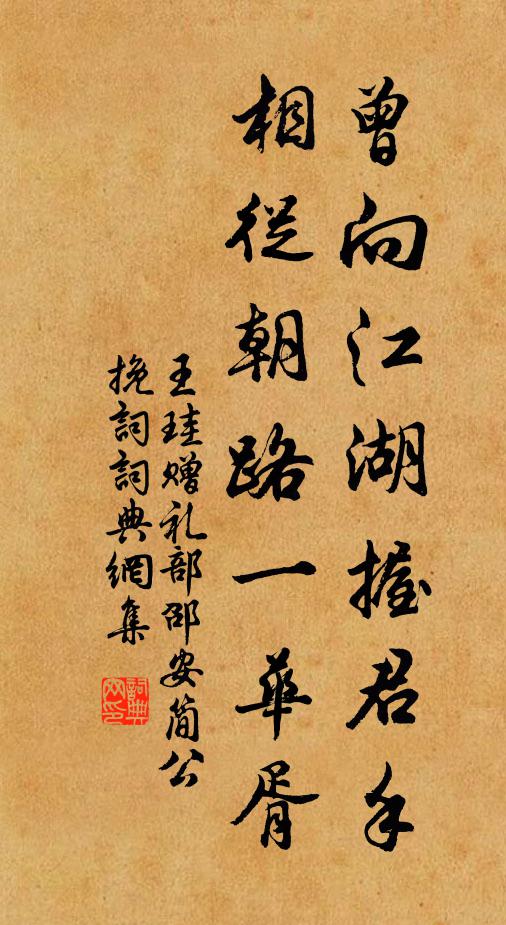 曾向江湖握君手
相從朝路一華胥
王珪贈礼部邵安简公
挽詞詞典網集
詞典网印